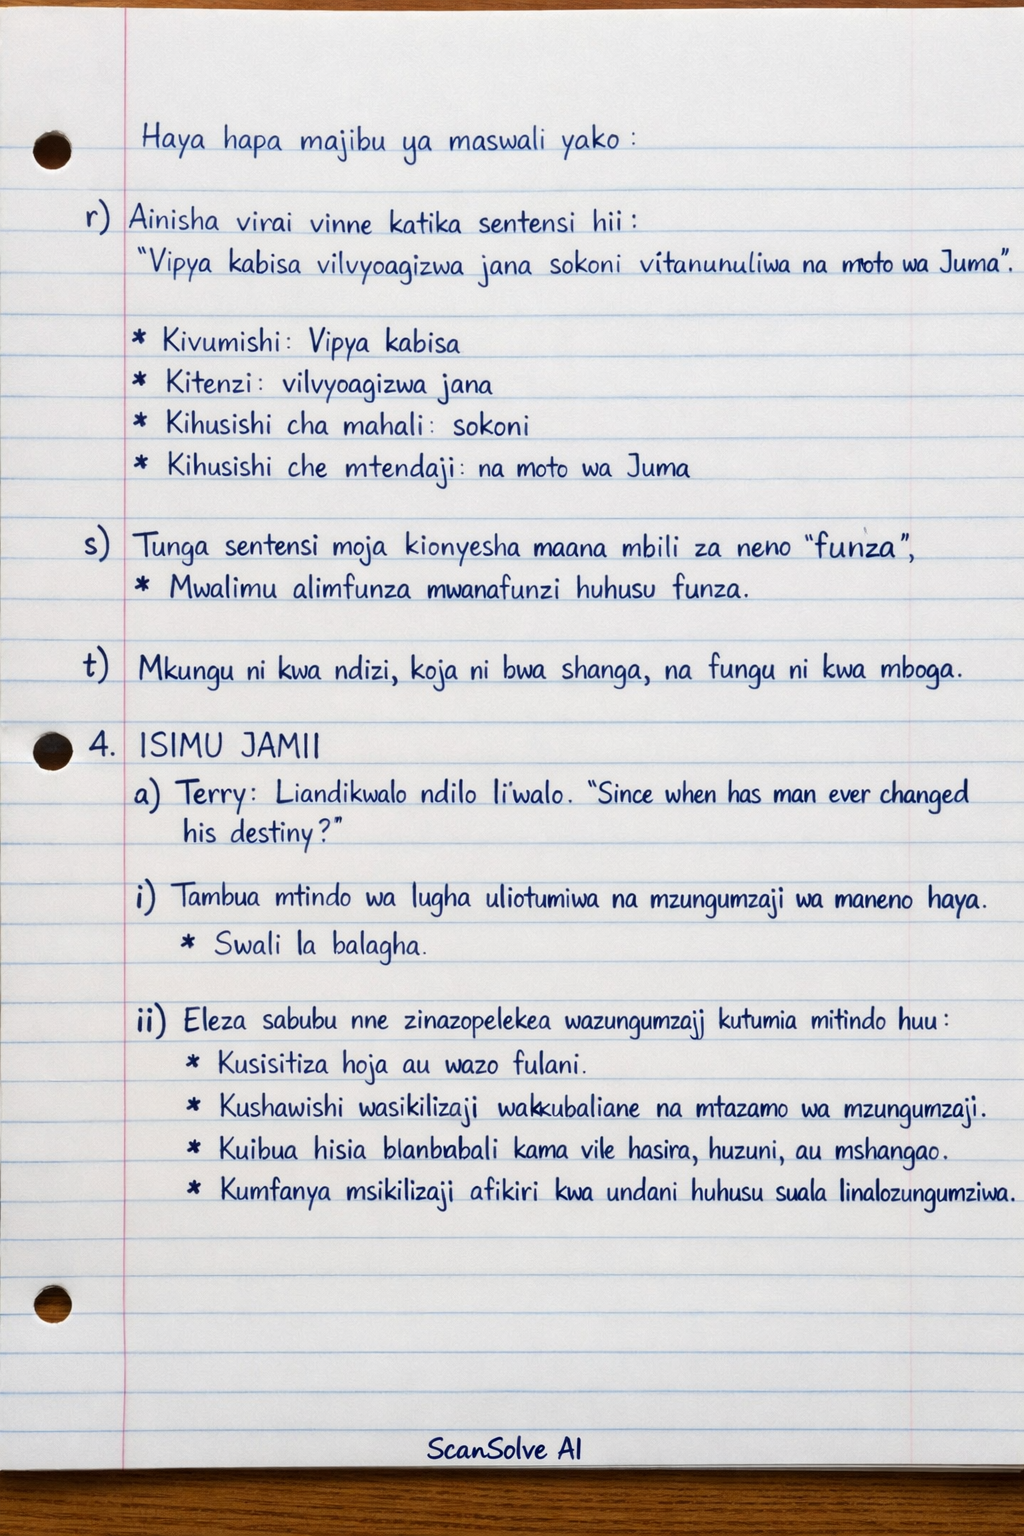 Haya hapa majibu ya maswali yako :
r) Ainisha virai vinne katika sentensi hii :
"Vipya kabisa vilvyoagizwa jana sokoni vitanunuliwa na moto wa Juma".
* Kivumishi: Vipya kabisa
* Kitenzi: vilvyoagizwa jana
* Kihusishi cha mahali: sokoni
* Kihusishi che mtendaji: na moto wa Juma
s) Tunga sentensi moja kionyesha maana mbili za neno "funza",
* Mwalimu alimfunza mwanafunzi huhusu funza.
t) Mkungu ni kwa ndizi, koja ni bwa shanga, na fungu ni kwa mboga.
4. ISIMU JAMII
a) Terry: Liandikwalo ndilo li'walo. "Since when has man ever changed
his destiny?"
i) Tambua mtindo wa lugha uliotumiwa na mzungumzaji wa maneno haya.
* Swali la balagha.
ii) Eleza sabubu nne zinazopelekea wazungumzajj kutumia mitindo huu:
* Kusisitiza hoja au wazo fulani.
* Kushawishi wasikilizaji wakkubaliane na mtazamo wa mzungumzaji.
* Kuibua hisia kama vile hasira, huzuni, au mshangao.
* Kumfanya msikilizaji afikiri kwa undani huhusu suala linalozungumziwa.
ScanSolve AI